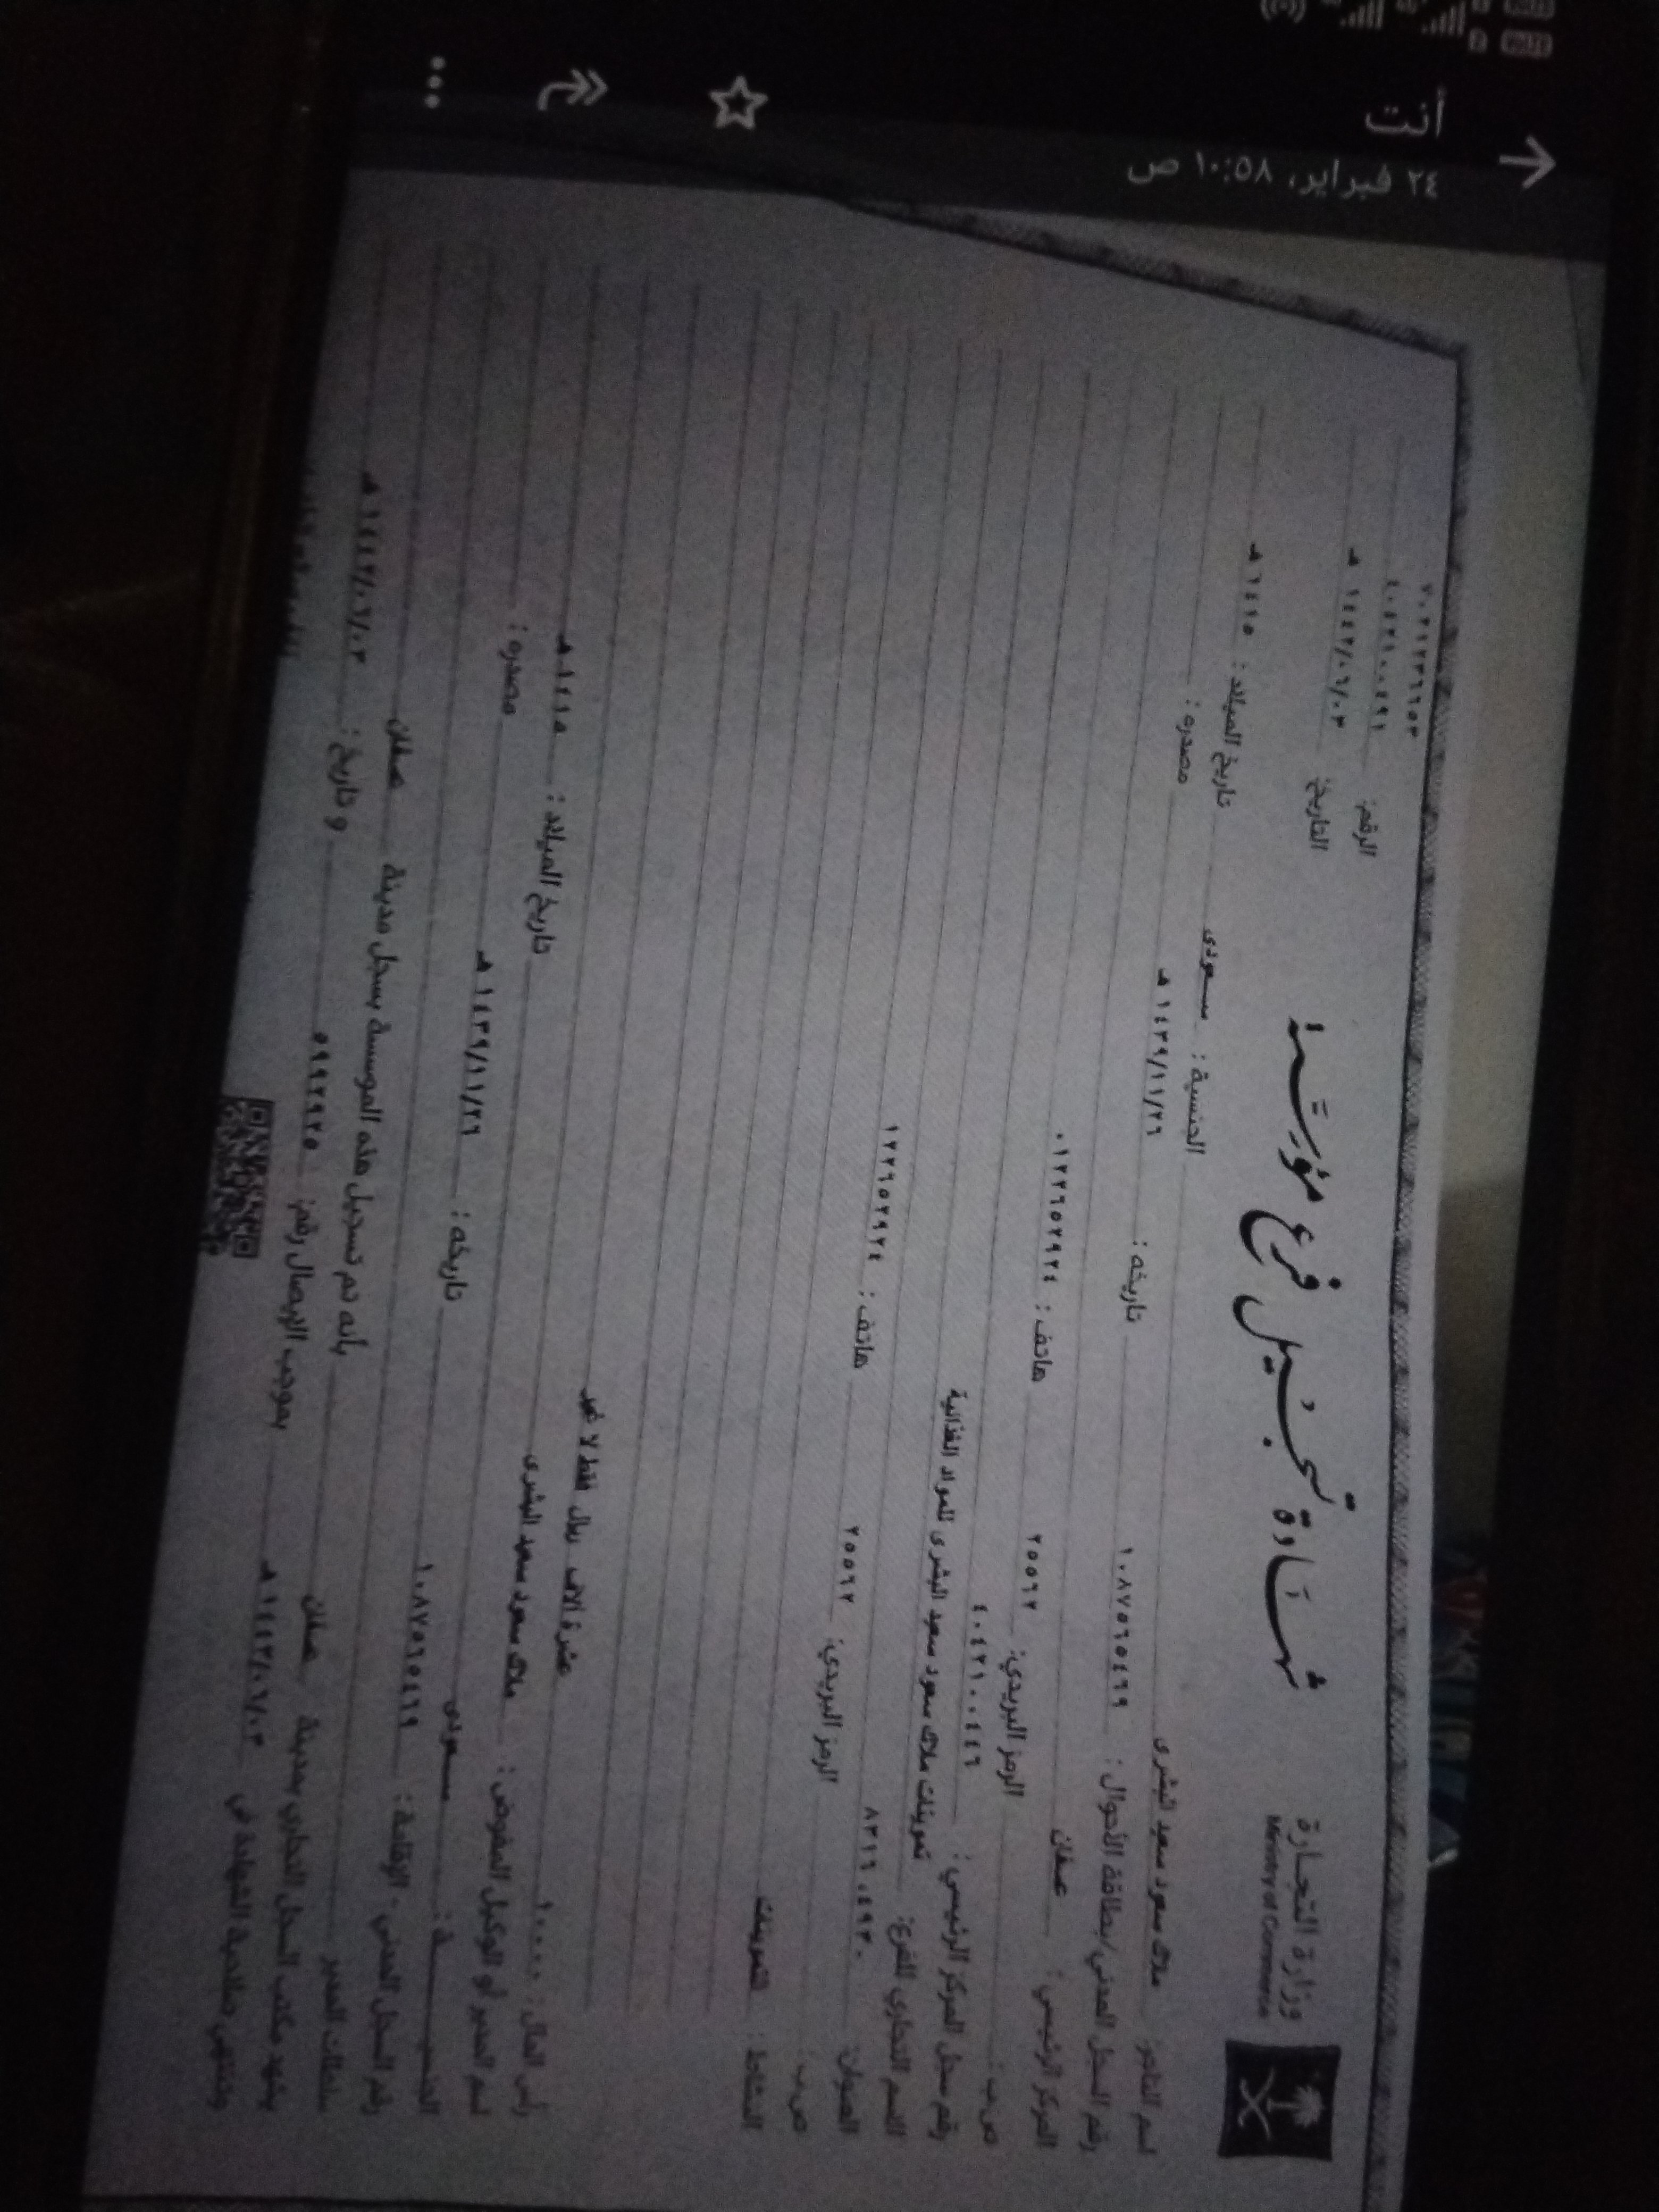 أنت
٢٤ فبراير، ١٠:٥٨ ص
وزارة التجارة
Ministry of Commerce
شهادة تسجيل فرع مؤسسة
٧٠٢١٢٣٦٦٥٣
الرقم: ٤٠٤٢١٠٠٤٩١
التاريخ: ١٤٤٢/٠٦/٠٣ هـ
اسم التاجر: ملاك سعود سعيد البشرى الجنسية: سعودى تاريخ الميلاد: ١٤١٥ هـ
رقم السجل المدني/بطاقة الأحوال: ١٠٨٧٥٦٥٤٦٩ تاريخه: ١٤٣٩/١١/٢٦ هـ مصدره:
المركز الرئيسي: عسفان
ص.ب: الرمز البريدي: ٢٥٥٦٢ هاتف: ٠١٢٢٦٥٢٩٢٤
رقم سجل المركز الرئيسي: ٤٠٤٢١٠٠٤٤٦
الاسم التجاري للفرع: تموينات ملاك سعود سعيد البشرى للمواد الغذائية
العنوان:
ص.ب: الرمز البريدي: ٢٥٥٦٢ هاتف: ١٢٢٦٥٢٩٢٤
النشاط: التموينات
رأس المال: ١٠٠٠٠ عشرة آلاف ريال فقط لا غير
اسم المدير أو الوكيل المفوض: ملاك سعود سعيد البشرى تاريخ الميلاد: ١٤١٥ هـ
الجنسيـــة: سعودى
رقم السجل المدني - الإقامة: ١٠٨٧٥٦٥٤٦٩ تاريخه: ١٤٣٩/١١/٢٦ هـ مصدره:
سلطات المدير
يشهد مكتب السجل التجاري بمدينة عسفان بأنه تم تسجيل هذه المؤسسة بسجل مدينة عسفان
وتنتهي صلاحية الشهادة في ١٤٤٣/٠٦/٠٣ هـ بموجب الإيصال رقم: ٥٩٩٢٩٢٥ و تاريخ: ١٤٤٢/٠٦/٠٣ هـ